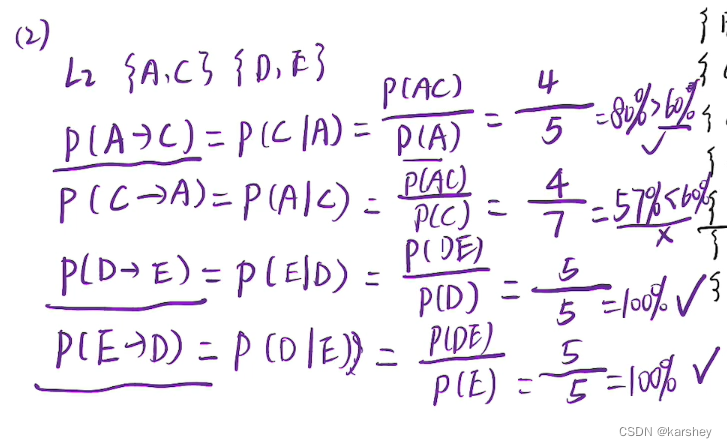 (2)
L2 {A,C} {D,E}
P(A→C) = P(C|A) = P(AC)/P(A) = 4/5 = 80% > 60% ✓
P(C→A) = P(A|C) = P(AC)/P(C) = 4/7 = 57% < 60% ×
P(D→E) = P(E|D) = P(DE)/P(D) = 5/5 = 100% ✓
P(E→D) = P(D|E) = P(DE)/P(E) = 5/5 = 100% ✓
CSDN @karshey